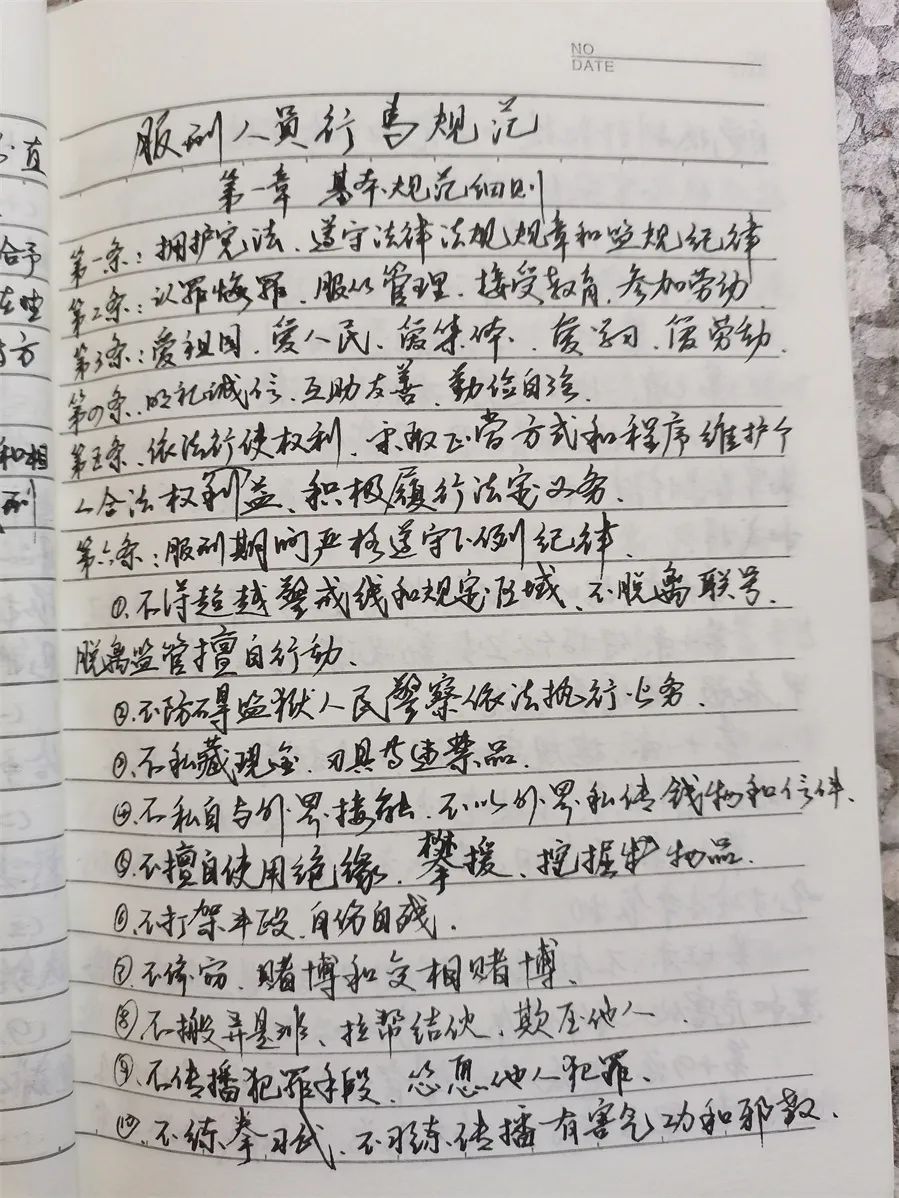 NO
DATE
服刑人员行为规范
第一章 基本规范细则
第一条：拥护宪法、遵守法律法规规章和监规纪律
第二条：认罪悔罪、服从管理、接受教育、参加劳动、
第3条：爱祖国、爱人民、爱集体、爱学习、爱劳动、
第四条、明礼诚信、互助友善、勤俭自强、
第五条、依法行使权利、采取正当方式和程序维护个
人合法权利益、积极履行法定义务、
第六条：服刑期间严格遵守下例纪律、
①、不得超越警戒线和规定区域、不脱离联号、
脱离监管擅自行动、
②、不防碍监狱人民警察依法执行公务、
③、不私藏现金、刃具等违禁品、
④、不私自与外界接触、不以外界私传钱物和信件、
⑤、不擅自使用绝缘、攀援、挖掘物品、
⑥、不打架斗殴、自伤自残、
⑦、不偷窃、赌博和变相赌博、
⑧、不搬弄是非、拉帮结伙、欺压他人、
⑨、不传播犯罪手段、怂恿他人犯罪、
⑩、不练拳习武、不习练传播有害气功和邪教、
直
给予
方
和相
刑